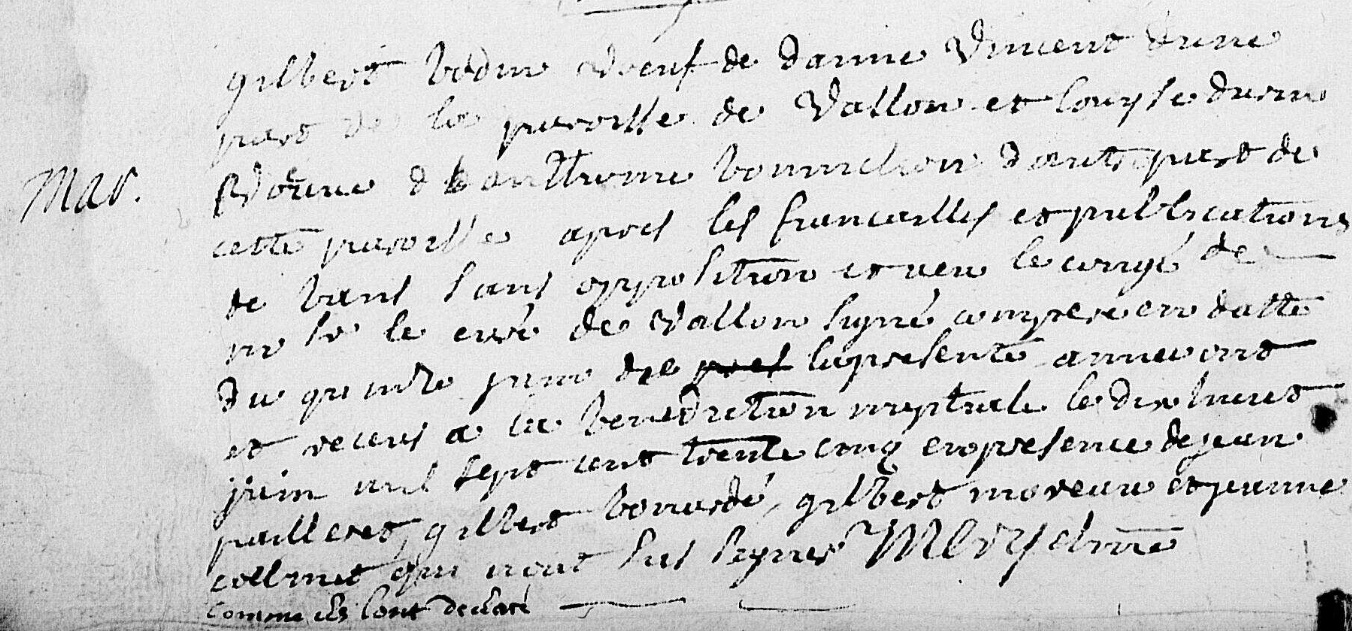 gilbert bodin veuf de danne vincent dune
part de la paroisse de vallon et louyse
veuve danthoine dautre part de
cette paroisse apres les fiancailles et publications
de bans sans opposition et veu le congé de
mr le curé de vallon signé en datte
du quinze juin de la presente annee ont
et receus a la benediction nuptiale le dix huict
juin mil sept cent trente cinq en presence de jean
pailleret, gilbert bonardé, gilbert moreau et jeanne
qui nont sus signer
Mar.
comme ils lont declaré